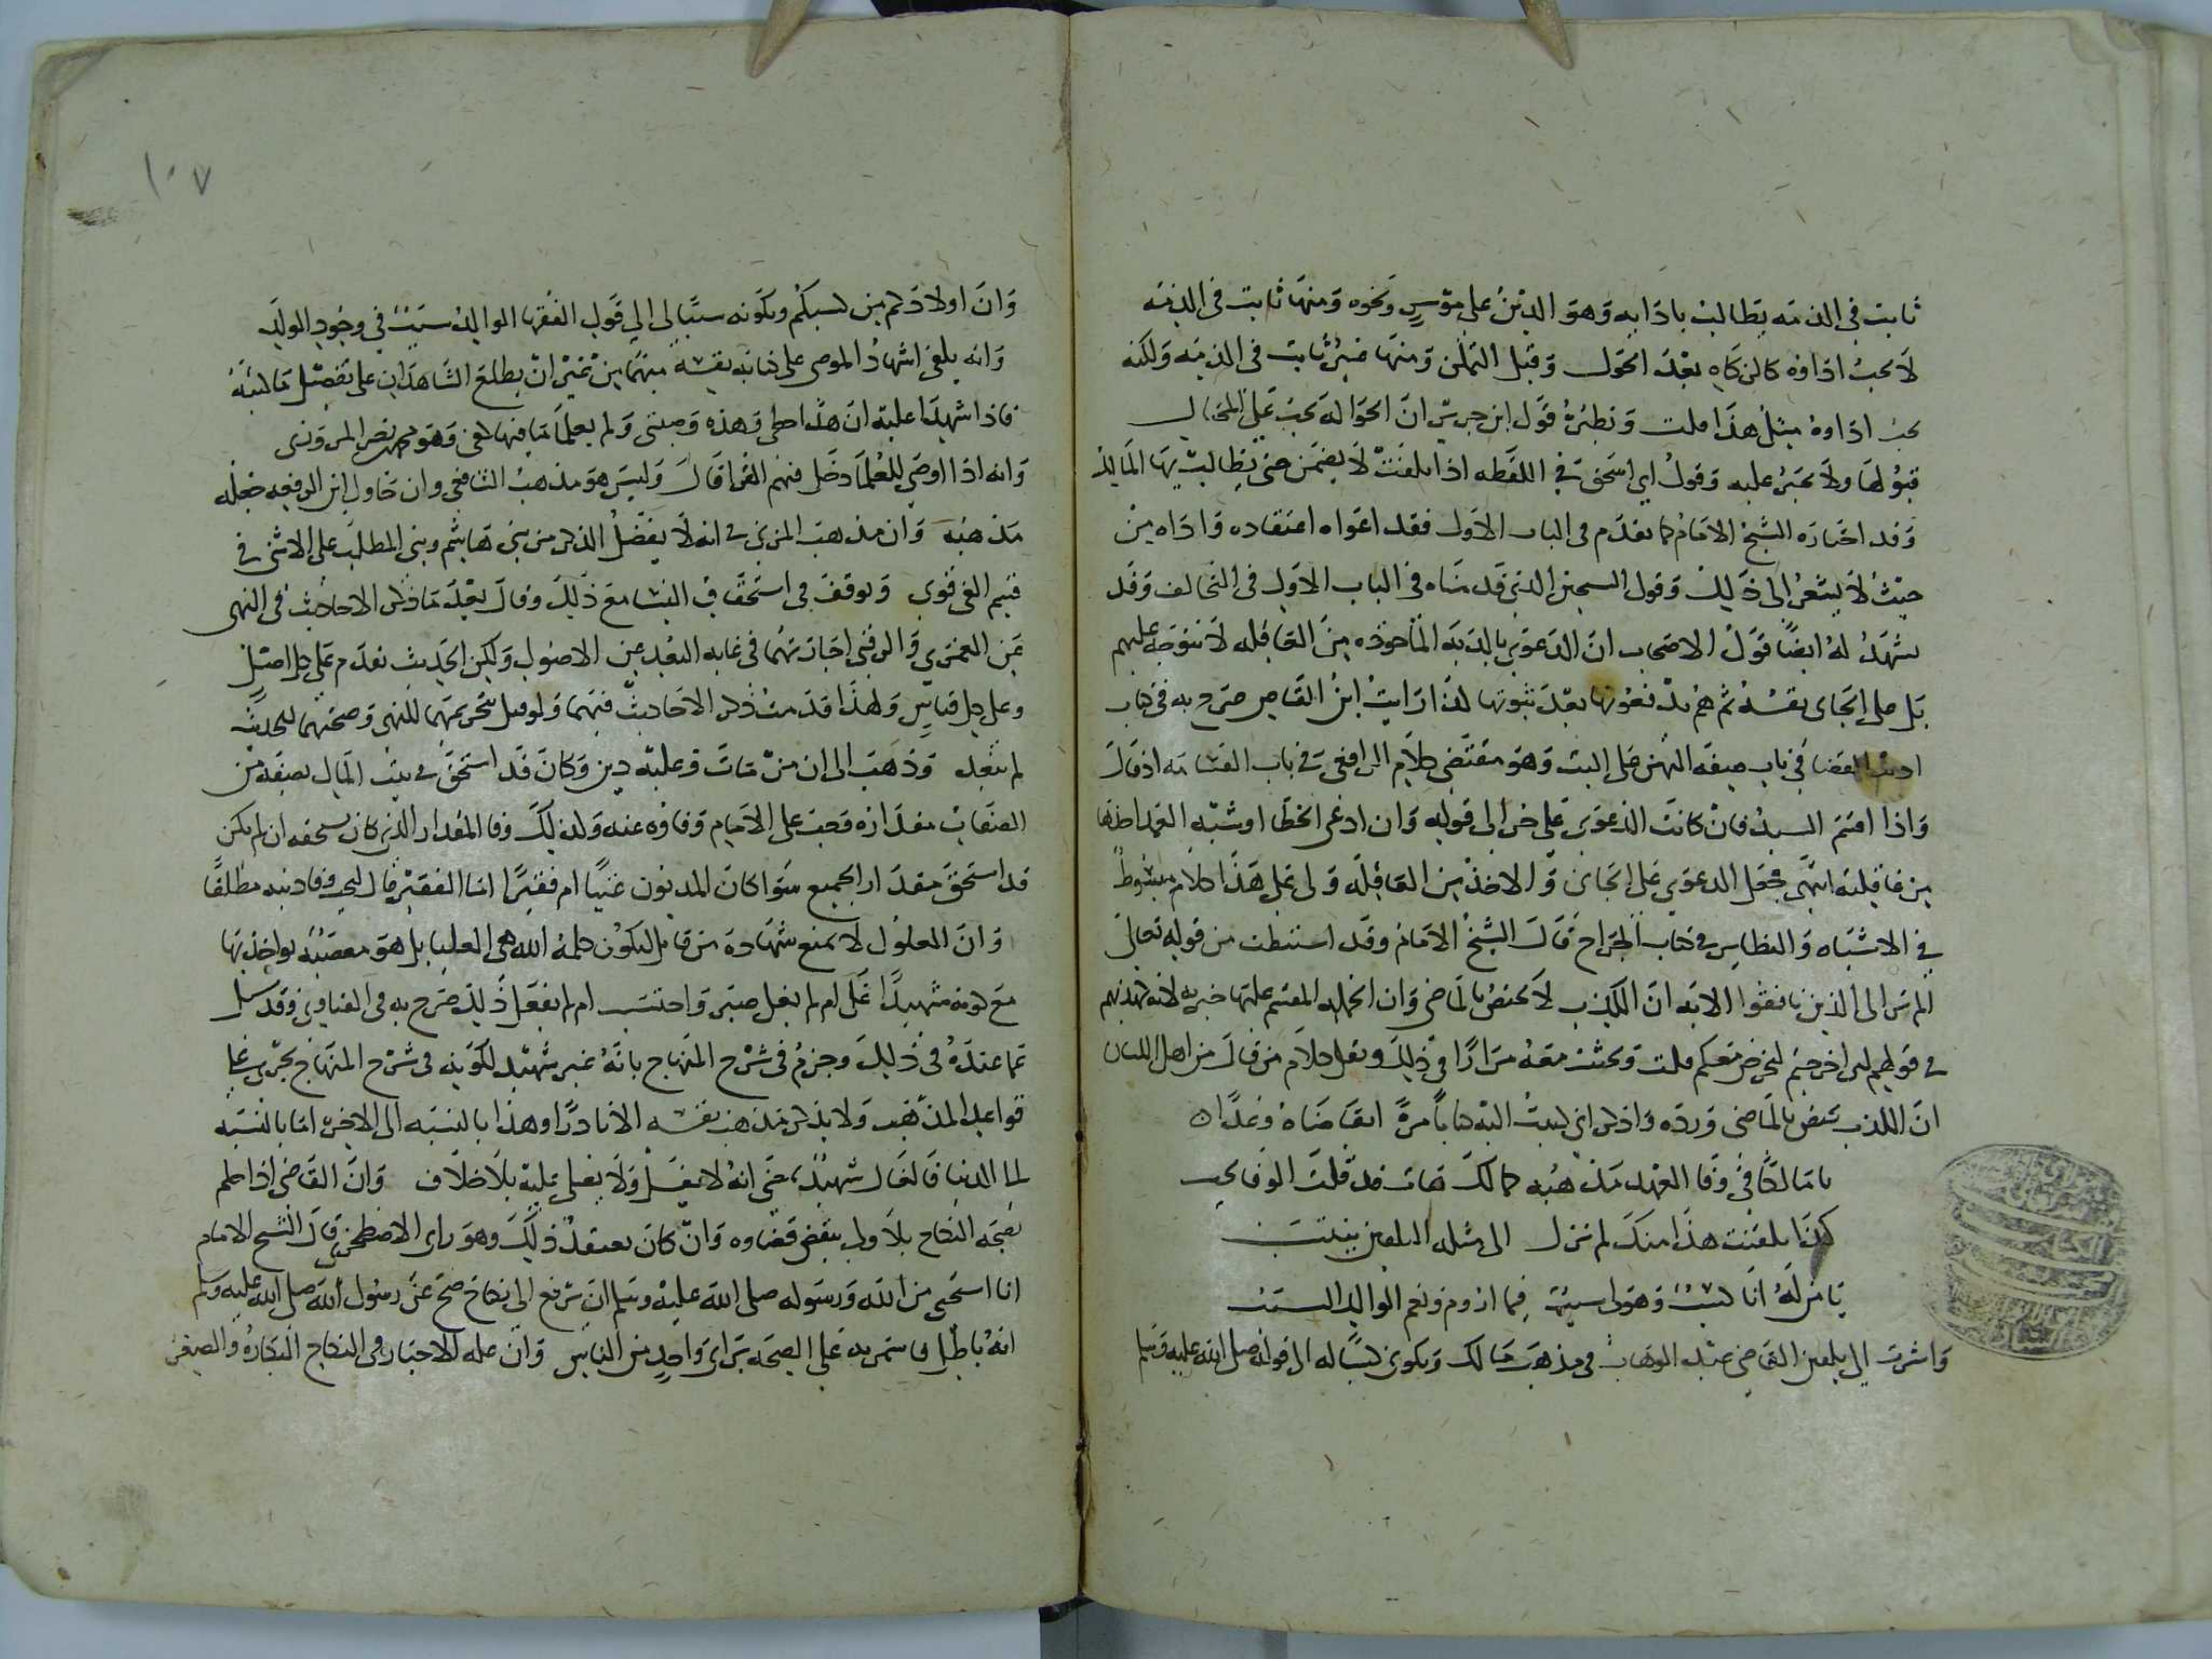 ثابت في الذمه يطالب بادايه وهو الدين على موسر ونحوه ومنها ثابت في الذمه
لا يجب اداوه كالزكاه بعد الحول وقبل التمكن ومنها غير ثابت في الذمه ولكنه
يجب اداوه مثل هذا قلت ونظيره قول ابن جرير ان الحواله يجب على المحتال
قبولها ولا يجبر عليه وقول ابي اسحق في اللقطه اذا تلفت لا يضمن حتى يطالب بها المالك
وقد اختاره الشيخ الامام كما تقدم في الباب الاول فقد اعواه اعتقاده واداه من
حيث لا يشعر الى ذلك وقول الشيخين الذي قدمناه في الباب الاول في التحالف وقد
يشهد له ايضا قول الاصحاب ان الدعوى بالديه الماخوذه من العاقله لا تتوجه عليهم
بل على الجاني نفسه ثم هم يدفعونها بعد ثبوتها كذا رايت ابن القاص صرح به في كتاب
ادب القضا في باب صفه اليمين على البت وهو مقتضى كلام الرافعي في باب القسامه اذ قال
واذا اقسم السيد فان كانت الدعوى على حر الى قوله وان ادعى الخطا او شبه العمد اخذها
من عاقلته انتهى فجعل الدعوى على الجاني والاخذ من العاقله ولي على هذا كلام مبسوط
في الاشباه والنظاير في كتاب الجراح قال الشيخ الامام وقد استنبطت من قوله تعالى
الم تر الى الذين نافقوا الايه ان الكذب لا يختص بالماضي وان الجمله المقسم عليها خبريه لانه كذبهم
في قولهم لين اخرجتم لنخرجن معكم قلت وبحثت معه مرارا في ذلك ونقل كلام من قال من اهل اللسان
ان الكذب يختص بالماضي ورده واذكر اني كتبت اليه كتابا مرة اتقاضاه وعدا
يا مالكا في وفا العهد مذهبه كمالك هات قد قلت الوفا يجب
كذا بلغنت هذا منك لم نزل الى مثله البلعين ينتسب
يا من له انا كسب وهو لي سبب فيما اروم ونعم الوالد السبب
واشرت الى بلعين القاضي عبد الوهاب في مذهب مالك وبكوني كسبا له الى قوله صلى الله عليه وسلم
وان اولادكم من كسبكم وبكونه سببا لي الى قول الفقها الوالد سبب في وجود الولد
وانه يكفي اشهاد الموصي على كتابه نفسه مبهما من غير ان يطلع الشاهدان على تفصيل ما كتبه
فاذا شهدا عليه ان هذا خطي وهذه وصيتي ولم يعلما ما فيها كفى وهو محمد بن نصر المروزي
وانه اذا اوصى للعلما دخل فيهم القرا قال وليس هو مذهب الشافعي وان حاول ابن الرفعه جعله
مذهبه وان مذهب المزني في انه لا يفضل الذكر من بني هاشم وبني المطلب على الانثى في
قسم الفي قوي وتوقف في استحقاق النسا مع ذلك وقال بعد ما ذكر الاحاديث في النهي
عن العمرى والرقبى اجازتهما في غايه البعد عن الاصول ولكن الحديث تقدم على كل اصل
وعلى كل قياس ولهذا قدمت ذكر الاحاديث فيهما ولو قيل بتحريمهما للنهي وصحتهما للحديث
لم يبعد وذهب الى ان من مات وعليه دين وكان قد استحق في بيت المال بصفه من
الصفات مقداره وجب على الامام وفاوه عنه وكذلك وفا المقدار الذي كان يستحقه ان لم يكن
قد استحق مقدار الجميع سوا كان المديون غنيا ام فقيرا اما الفقير قال فيجب وفا دينه مطلقا
وان الغلول لا يمنع شهادة من قاتل لتكون كلمة الله هي العليا بل هو معصيه يواخذ بها
مع كونه شهيدا غل ام لم يغل صبر واحتسب ام لم يفعل ذلك صرح به في الفتاوى وقد سئل
عما عنده في ذلك وجزم في شرح المنهاج بانه غير شهيد لكونه في شرح المنهاج يجري على
قواعد المذهب ولا يذكر مذهب نفسه الا نادرا وهذا بالنسبه الى الاخره اما بالنسبه
لما الدنيا فالغال شهيد، حتى انه لا يغسل ولا يصلى عليه بلا خلاف وان القاضي اذا حكم
بصحه النكاح بلا ولي ينقض قضاوه وان كان يعتقد ذلك وهو راي الاصطخري قال الشيخ الامام
انا استحي من الله ورسوله صلى الله عليه وسلم ان يرفع الي نكاح صح عن رسول الله صلى الله عليه وسلم
انه باطل فاستمر به على الصحه براي واحد من الناس وان عله الاجبار في النكاح البكاره والصغر
١٠٧